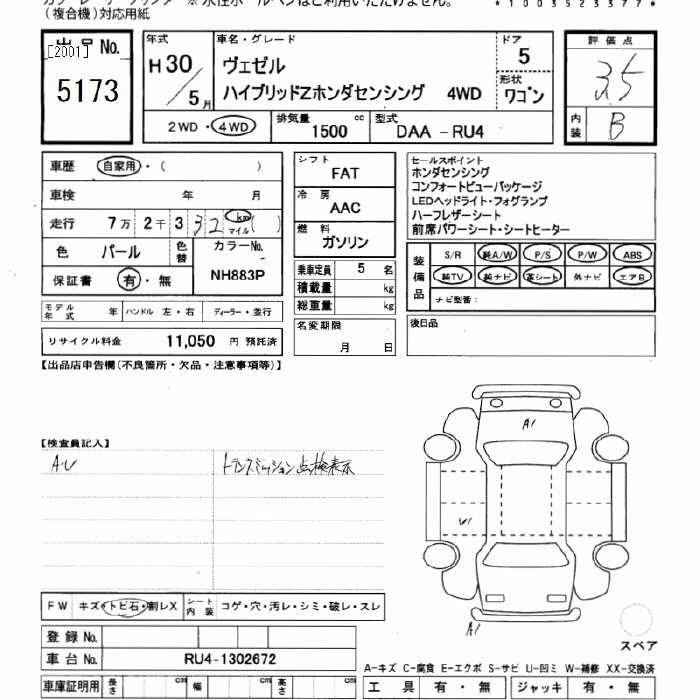 (複合機)対応用紙
*1003523377*
出品 No.
[2001]
5173
年式
H30/5月
車名・グレード
ヴェゼル
ハイブリッドZホンダセンシング 4WD
ドア
5
形状
ワゴン
2WD・4WD
排気量 1500 cc
型式 DAA -RU4
評価点
3.5
内装 B
車歴 自家用・( )
車検 年 月
走行 7万2千3 32 km マイル ( )
色 パール 色替 カラーNo. NH883P
保証書 有・無
シフト FAT
冷房 AAC
燃料 ガソリン
乗車定員 5 名
積載量 kg
総重量 kg
名変期限
月 日
セールスポイント
ホンダセンシング
コンフォートビューパッケージ
LEDヘッドライト・フォグランプ
ハーフレザーシート
前席パワーシート・シートヒーター
装備品
S/R 純A/W P/S P/W ABS
純TV 純ナビ 革シート 外ナビ エアB
ナビ型番:
後日品
モデル年式 年 ハンドル 左・右 ディーラー・並行
リサイクル料金 11,050 円 預託済
【出品店申告欄(不良箇所・欠品・注意事項等)】
【検査員記入】
A.U
トランスミッション点検表示
A1
U1
A1
FW キズ・トビ石・割レX シート内装 コゲ・穴・汚レ・シミ・破レ・スレ
登録 No.
車台 No. RU4-1302672
車庫証明用 長さ cm 幅 cm 高さ cm
スペア
A-キズ C-腐食 E-エクボ S-サビ U-凹ミ W-補修 XX-交換済
工具 有・無 ジャッキ 有・無